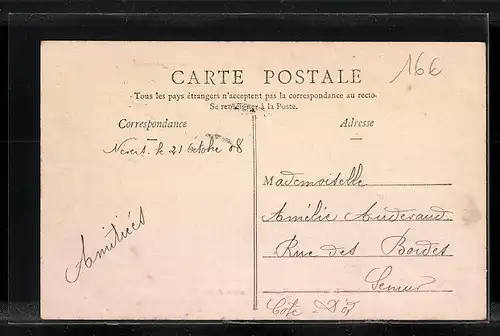 16€
CARTE POSTALE
Tous les pays étrangers n'acceptent pas la correspondance au recto.
Se renseigner à la Poste.
Correspondance
Adresse
Nevers. le 21 Octobre 08
Amitiés
Mademoiselle
Amélie Auderaud
Rue des Bordes
Semur
Cote - D'or